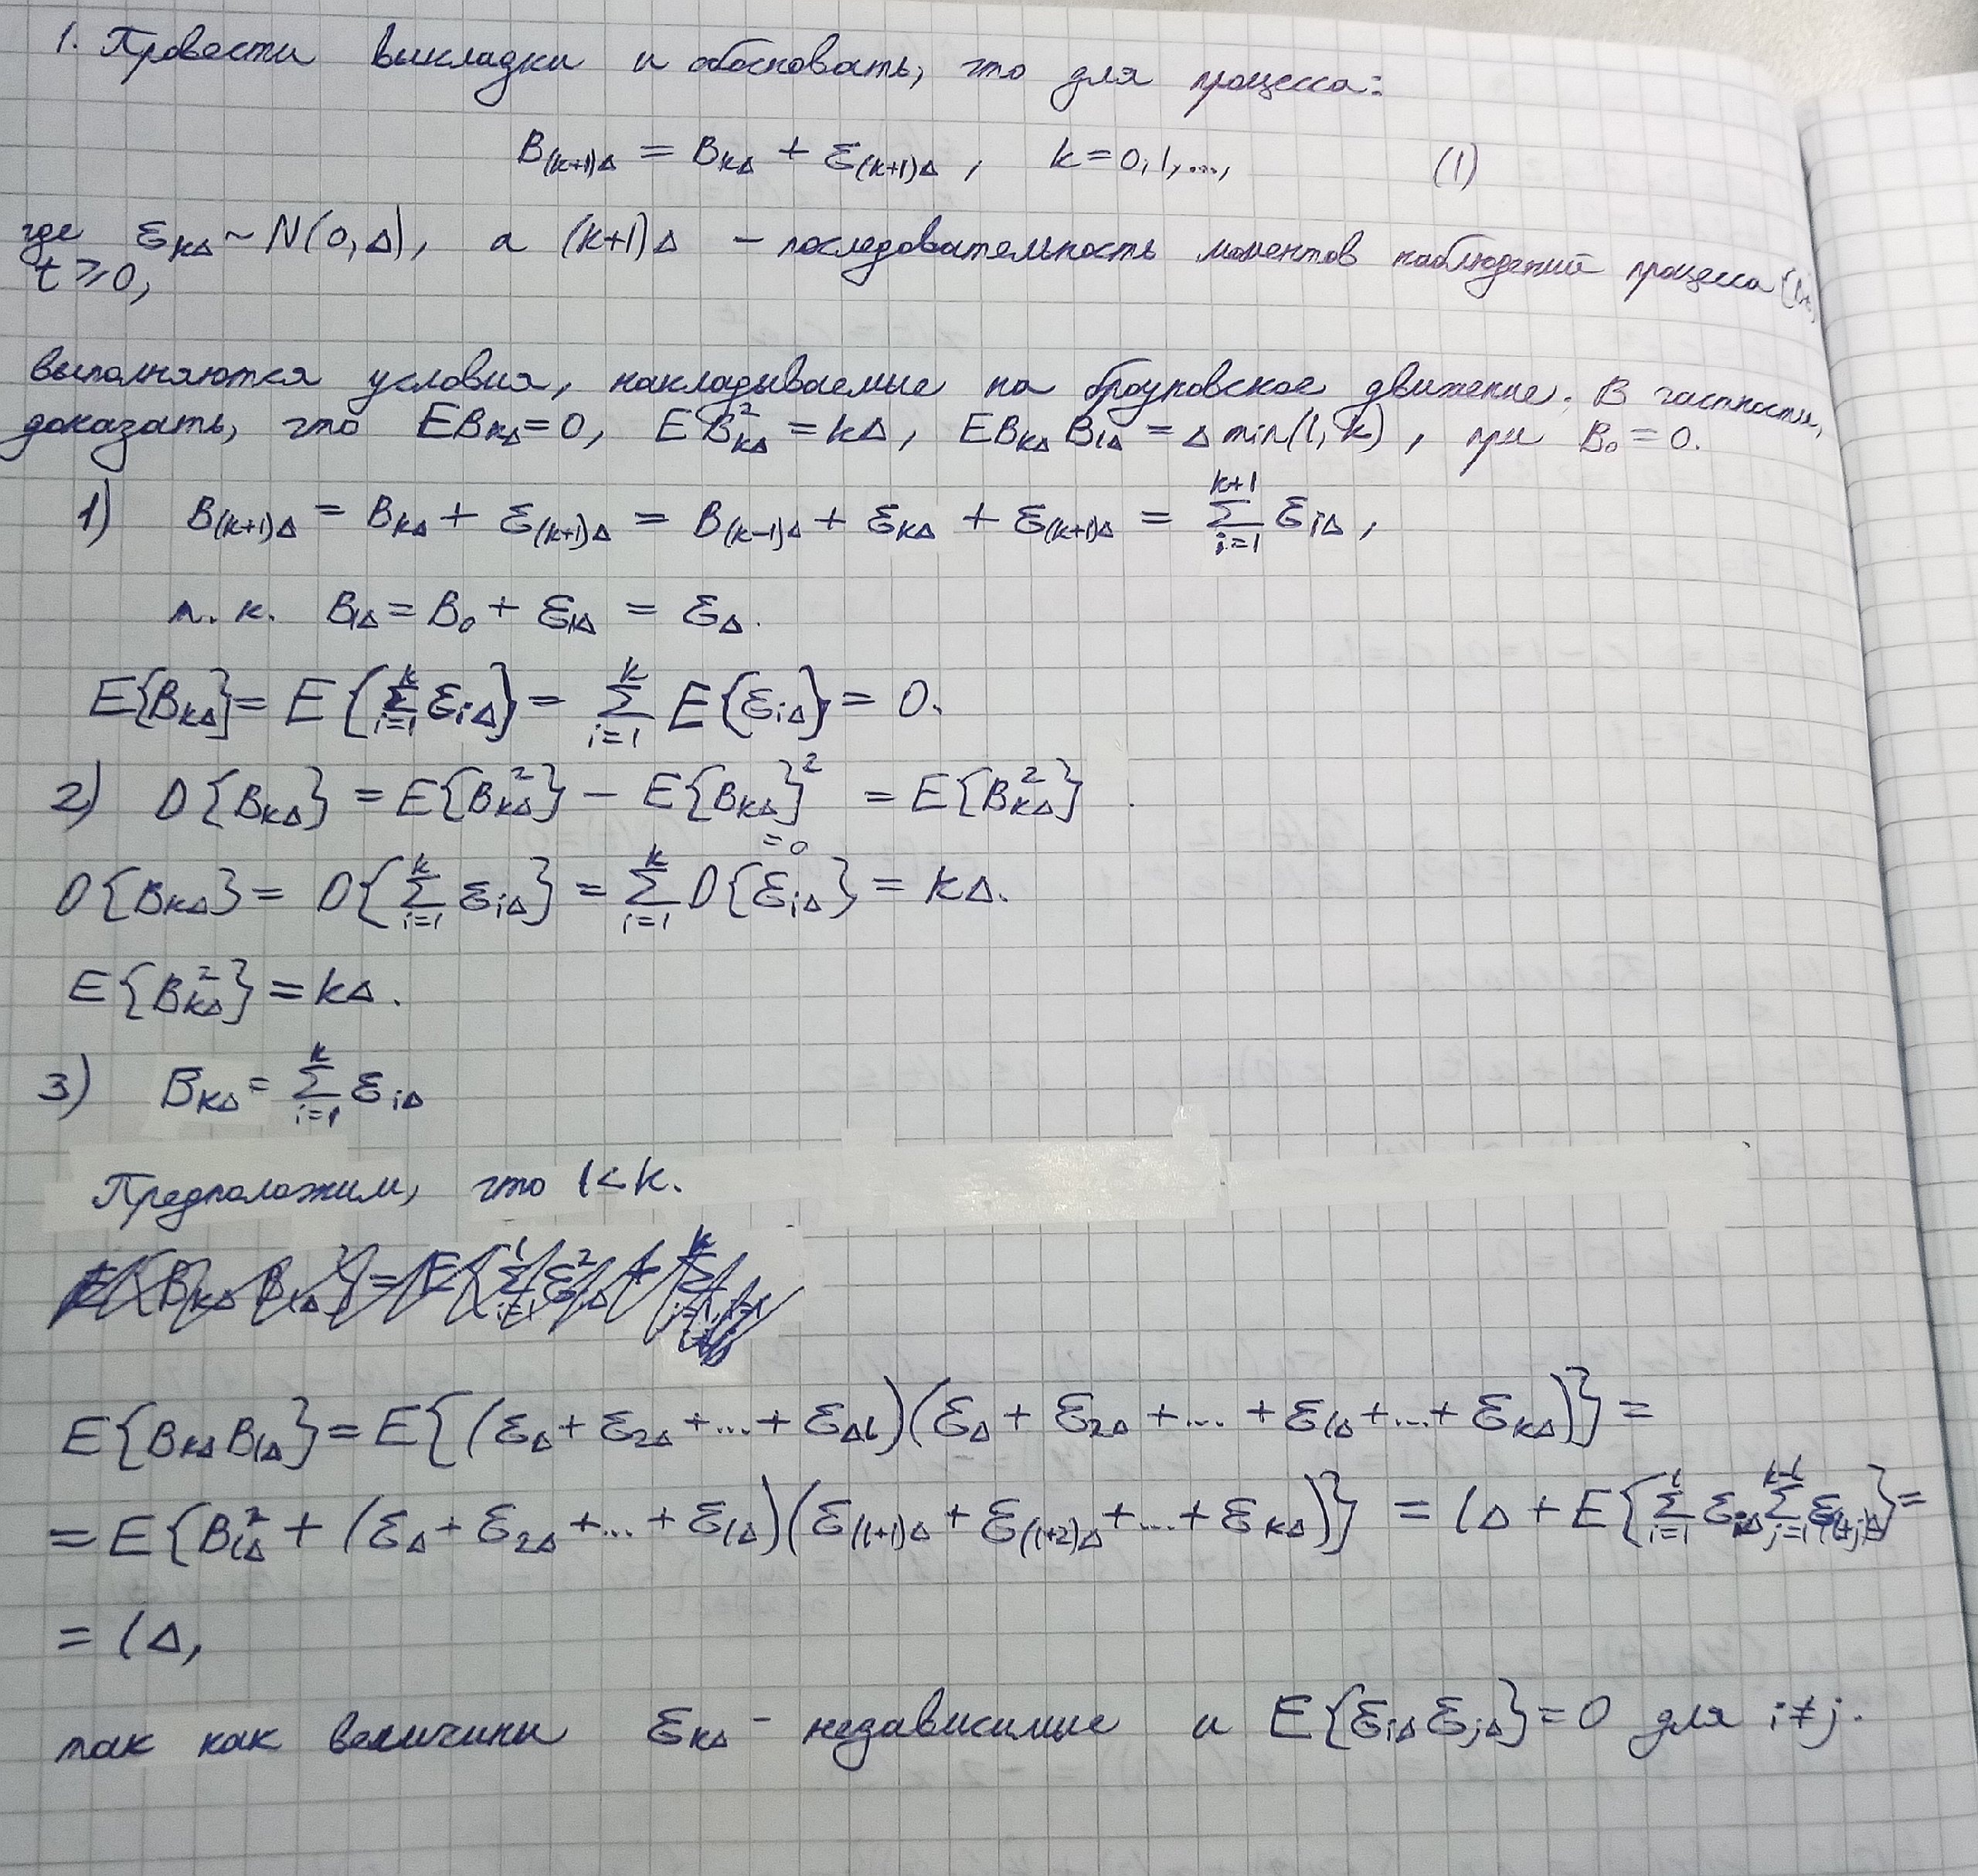 1. Провести выкладки и обосновать, что для процесса:
B₍ₖ₊₁₎Δ = BₖΔ + ε₍ₖ₊₁₎Δ, k=0,1,..., (1)
где εₖΔ ~ N(0,Δ), а (k+1)Δ – последовательность моментов наблюдений процесса
t ≥ 0,
выполняются условия, накладываемые на броуновское движение. В частности,
доказать, что EBₖΔ=0, EB²ₖΔ = kΔ, EBₖΔ BₗΔ = Δ min(l, k), при B₀ = 0.
1) B₍ₖ₊₁₎Δ = BₖΔ + ε₍ₖ₊₁₎Δ = B₍ₖ₋₁₎Δ + εₖΔ + ε₍ₖ₊₁₎Δ = ∑_{i=1}^{k+1} ε_{iΔ},
т. к. B_{1Δ} = B₀ + ε_{1Δ} = ε_Δ.
E{B_{kΔ}} = E{∑_{i=1}^{k} ε_{iΔ}} = ∑_{i=1}^{k} E{ε_{iΔ}} = 0.
2) D{B_{kΔ}} = E{B²_{kΔ}} – E{B_{kΔ}}² = E{B²_{kΔ}}
=0
D{B_{kΔ}} = D{∑_{i=1}^{k} ε_{iΔ}} = ∑_{i=1}^{k} D{ε_{iΔ}} = kΔ.
E{B²_{kΔ}} = kΔ.
3) B_{kΔ} = ∑_{i=1}^{k} ε_{iΔ}
Предположим, что l < k.
E{B_{kΔ} B_{lΔ}} = E{(ε_Δ + ε_{2Δ} +...+ ε_{Δl})(ε_Δ + ε_{2Δ} +... + ε_{lΔ} +...+ ε_{kΔ})} =
= E{B²_{lΔ} + (ε_Δ + ε_{2Δ} +... + ε_{lΔ})(ε_{(l+1)Δ} + ε_{(l+2)Δ} +...+ ε_{kΔ})} = lΔ + E{∑_{i=1}^{l} ε_{iΔ} ∑_{j=1}^{k-l} ε_{(l+j)Δ}} =
= lΔ,
так как величины ε_{kΔ} – независимые и E{ε_{iΔ} ε_{jΔ}} = 0 для i≠j.